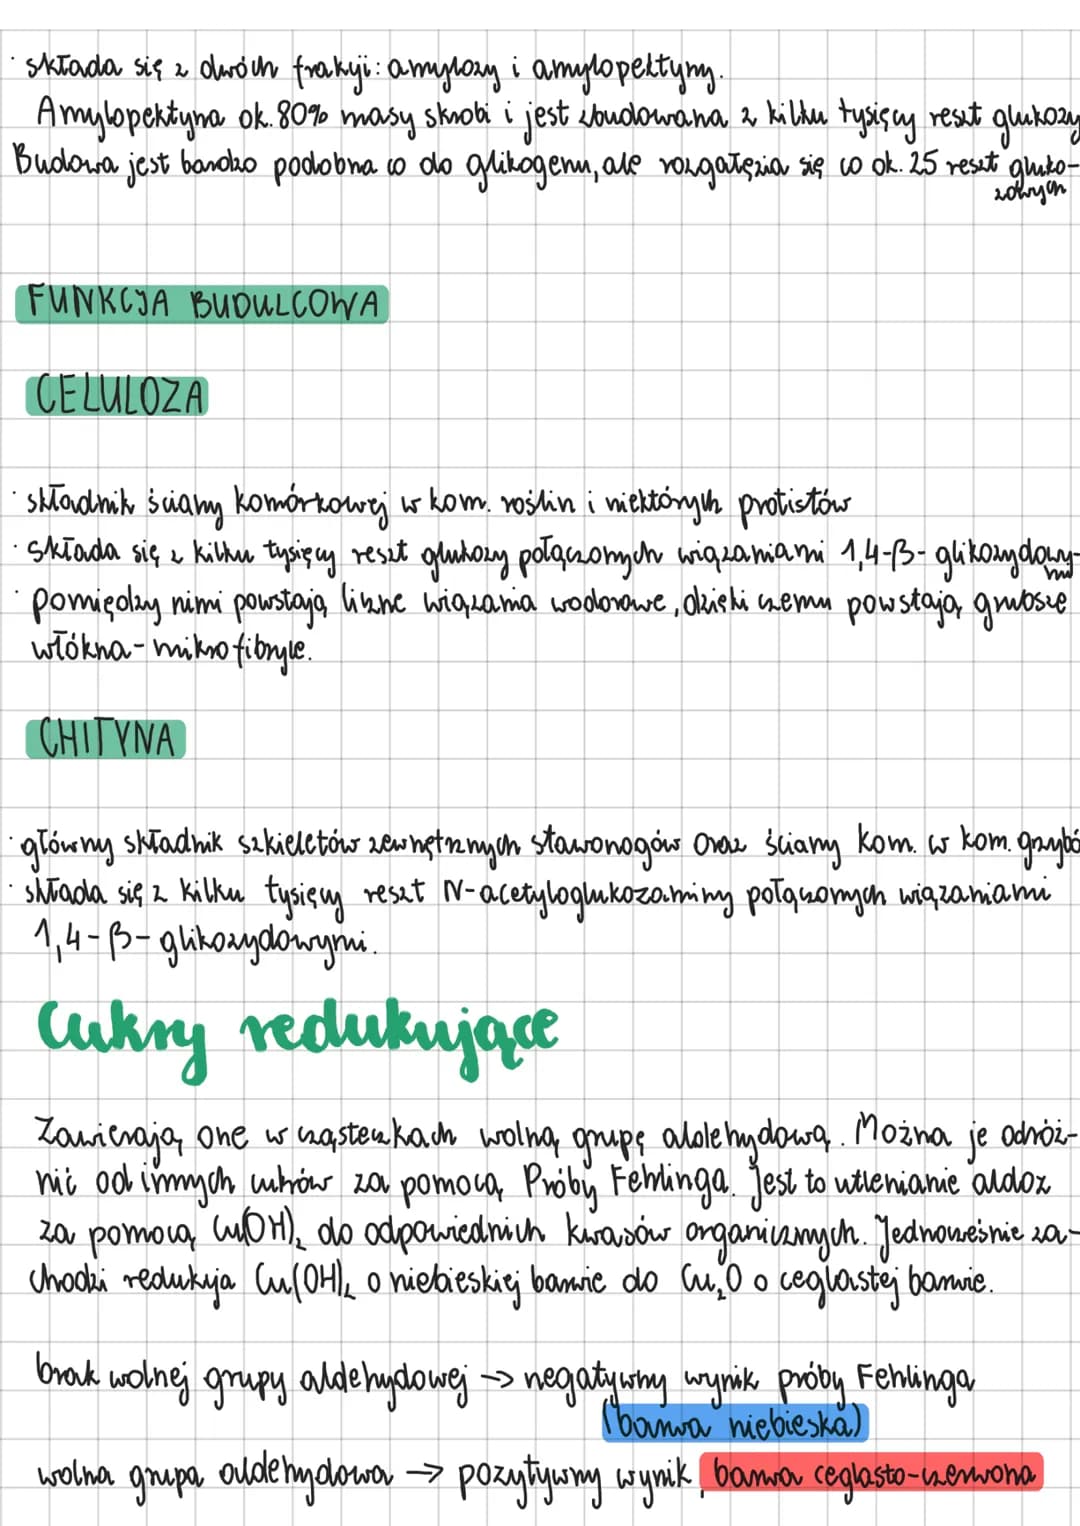 · składa się z dwóch frakcji: amylozy i amylopektyny.
Amylopektyna ok. 80% masy skrobi i jest zbudowana z kilku tysięcy reszt glukozy
Budowa jest bardzo podobna co do glikogenu, ale rozgałęzia się co ok. 25 reszt gluko-
zowych
FUNKCJA BUDULCOWA
CELULOZA
· składnik ściany komórkowej w kom. roślin i niektórych protistów
· składa się z kilku tysięcy reszt glukozy połączonych wiązaniami 1,4-β-glikozydowy-
mi
· pomiędzy nimi powstają liczne wiązania wodorowe, dzięki czemu powstają grubsze
włókna - mikrofibryle.
CHITYNA
· główny składnik szkieletów zewnętrznych stawonogów oraz ściany kom. w kom. grzybó
· składa się z kilku tysięcy reszt N-acetyloglukozaminy połączonych wiązaniami
1,4-β-glikozydowymi.
Cukry redukujące
Zawierają one w cząsteczkach wolną grupę aldehydową. Można je odróż-
nić od innych cukrów za pomocą Próby Fehlinga. Jest to utlenianie aldoz
za pomocą Cu(OH)₂ do odpowiednich kwasów organicznych. Jednocześnie za-
chodzi redukcja Cu(OH)₂ o niebieskiej barwie do Cu₂O o ceglastej barwie.
brak wolnej grupy aldehydowej → negatywny wynik próby Fehlinga
(barwa niebieska)
wolna grupa aldehydowa → pozytywny wynik, barwa ceglasto-czerwona